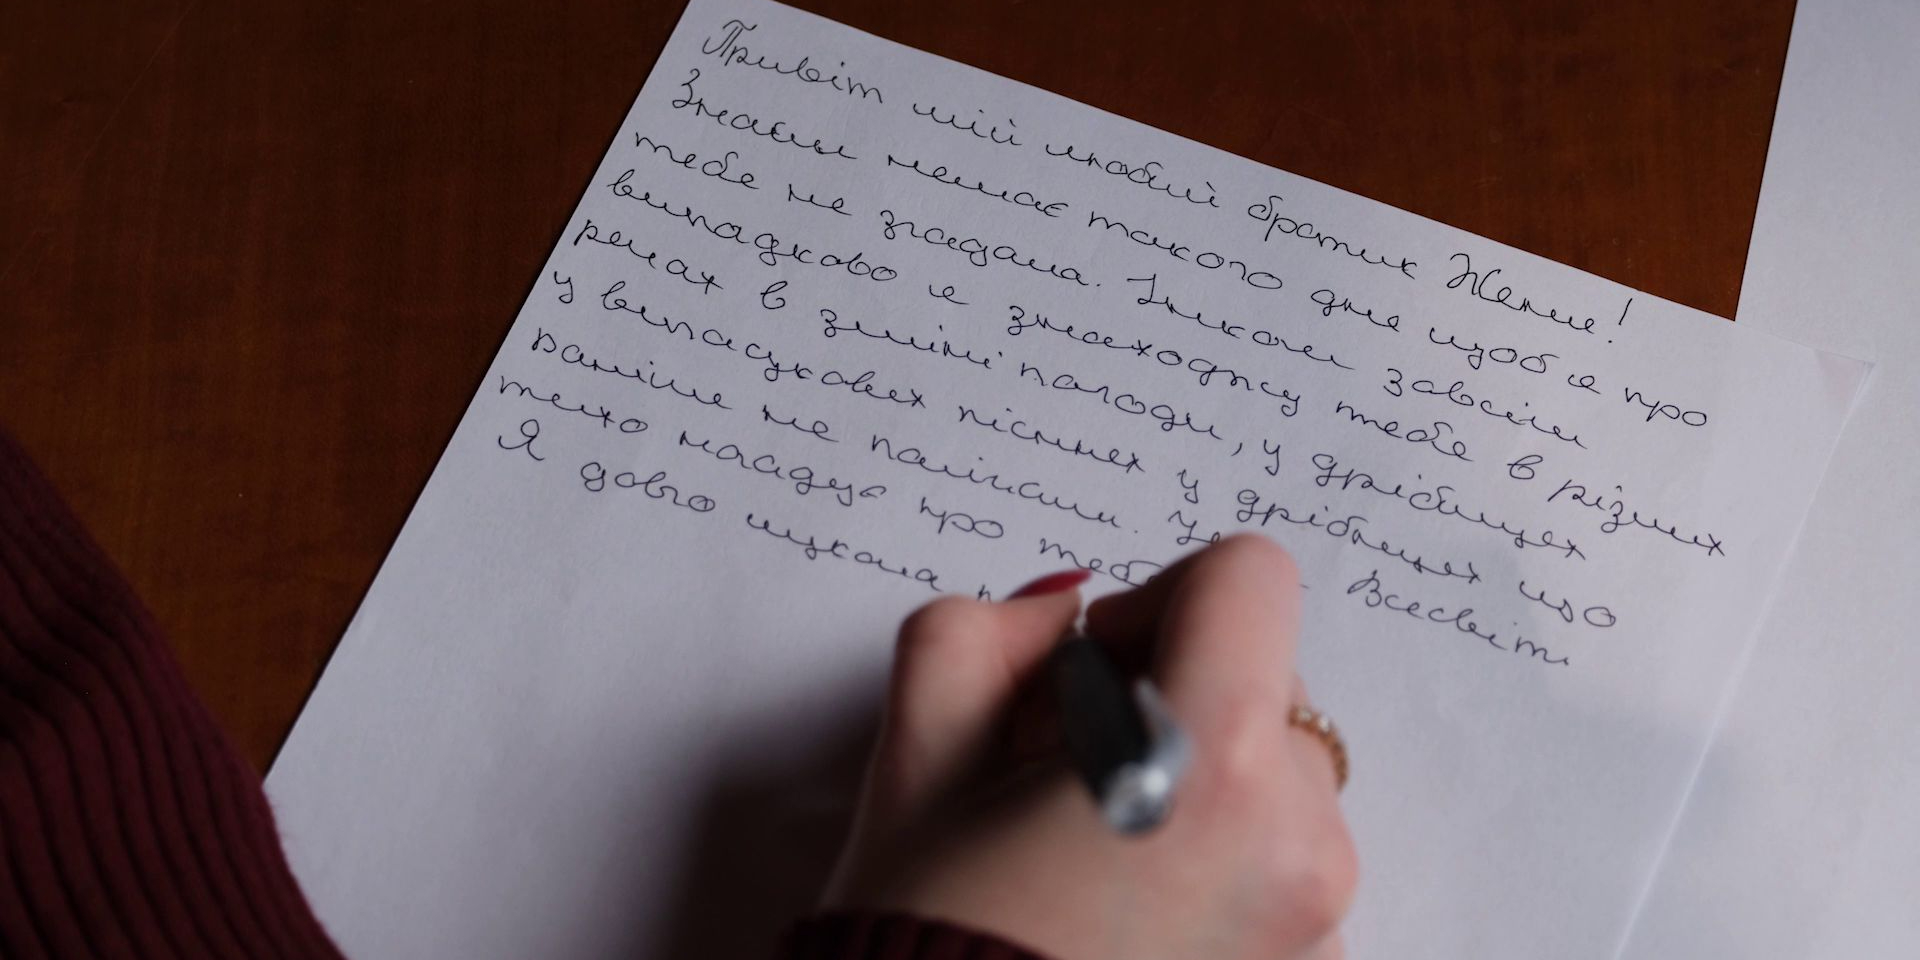 Привіт мій любий братик Жене!
Знаєш немає такого дня щоб я про
тебе не згадала. Інколи завсім
випадково я знаходжу тебе в різних
речах в зміні погоди, у дрібницях
у випадкових піснях у дрібницях що
раніше не помічали. Всесвіт
тихо нагадує про
Я довго шукала